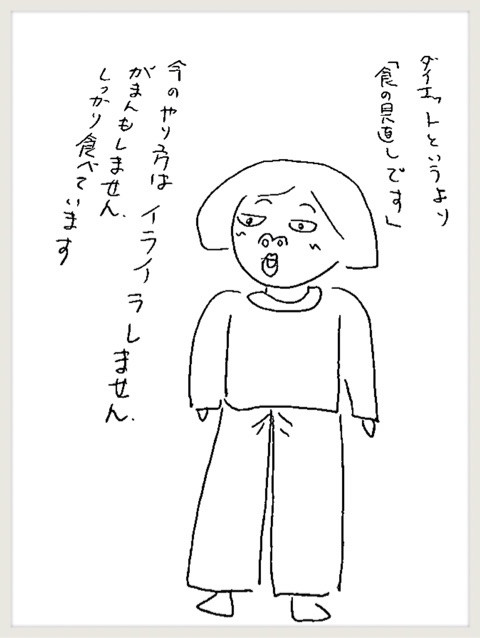 ダイエットというより
「食の見直しです」
今のやり方は イライラしません.
がまんもしません.
しっかり食べています